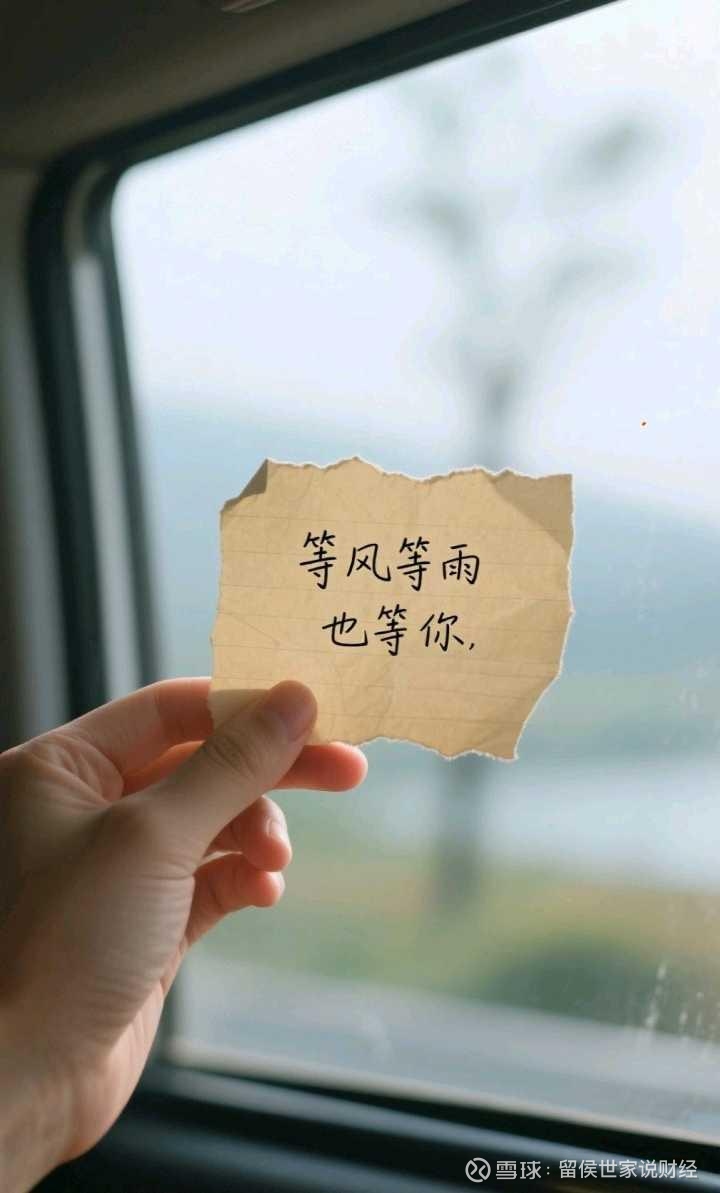 等风等雨
也等你,
雪球：留侯世家说财经